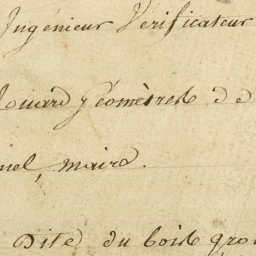 Ingénieur Vérificateur
ouard géomètres de
nel, maire.
Dite du bois gro